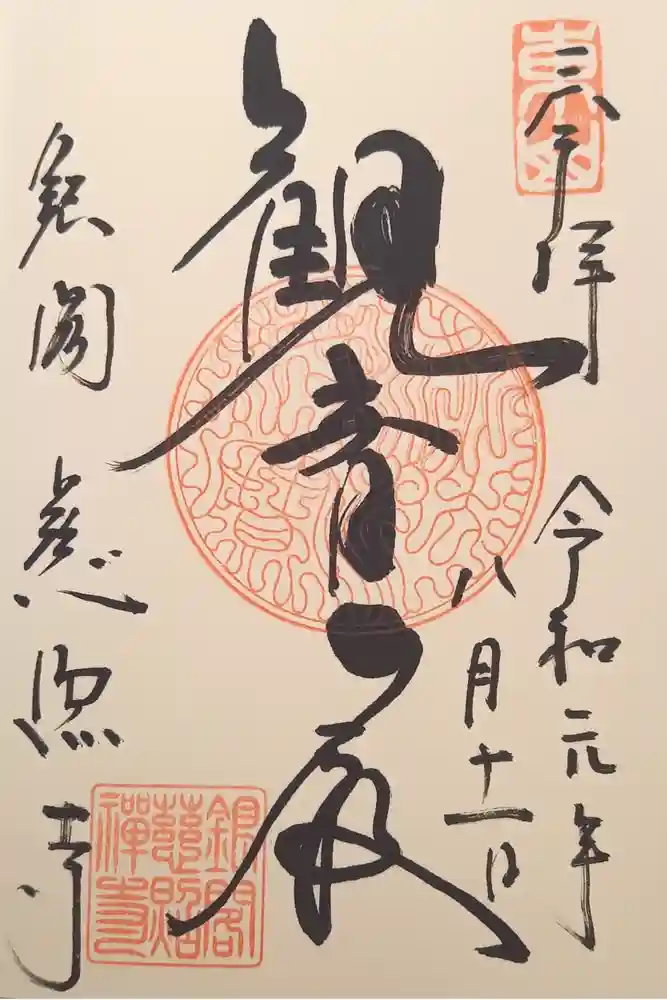 東山
奉拝
令和元年
八月十一日
観音殿
銀閣慈照寺
銀閣
慈照
禪寺